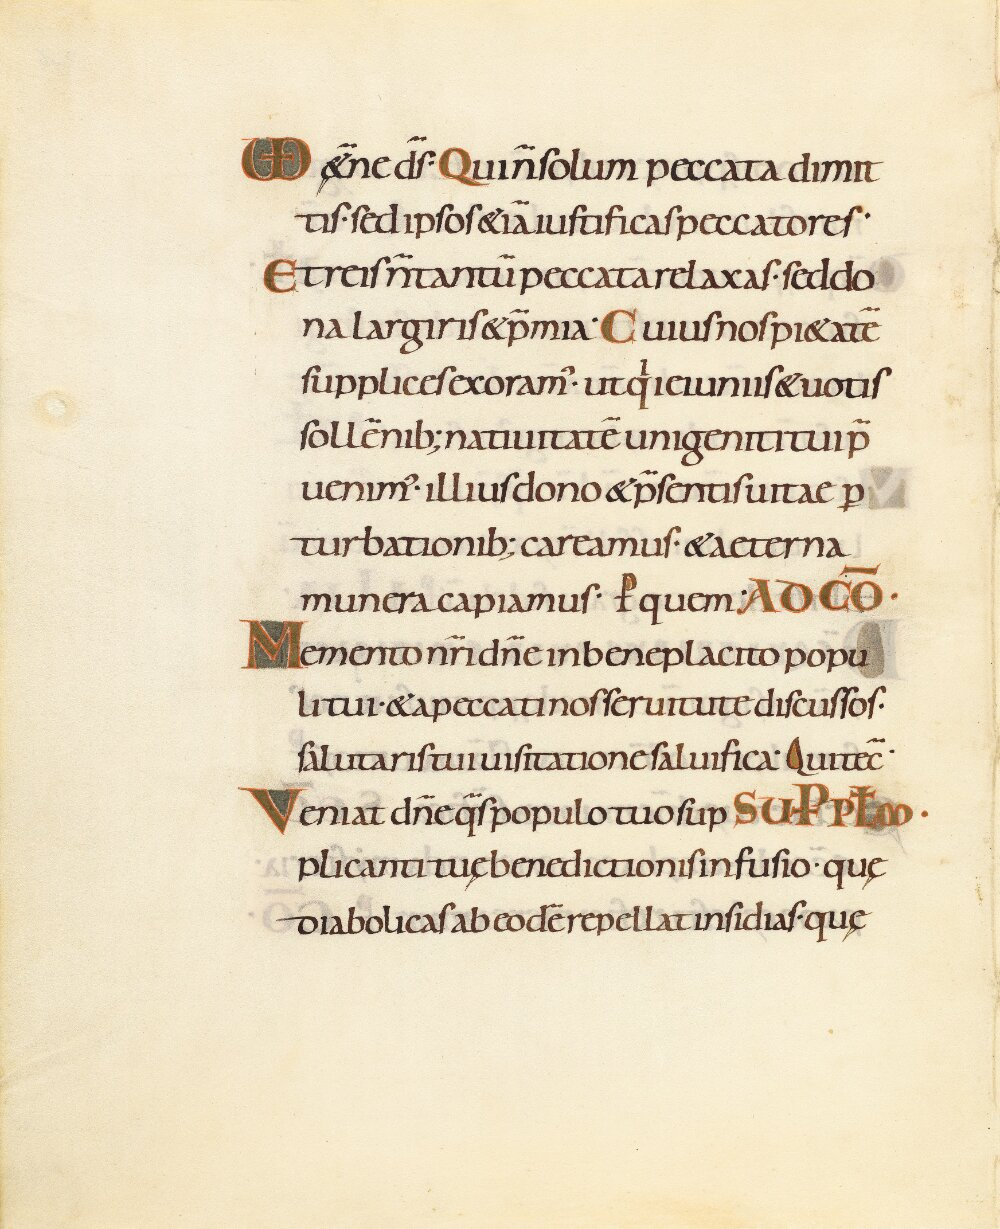 VD &̨̄ne d̄s· Qui n̄ solum peccata dimit
tis· sed ipsos &iā iustificas peccatores·
Et reis n̄ tantū peccata relaxas· sed do
na largiris & p̄mia· Cuius nos pi&atē
supplices exoram᾽· ut qͥ ieiuniis & uotis
sollēnib; natiuitatē unigeniti tui p̄
uenim᾽· illius dono & p̄sentis uitae ꝑ
turbationib; careamus· & aeterna
munera capiamus· P quem· AD CŌ·
Memento n̄ri dn̄e in beneplacito popu
li tui· & a peccati nos seruitute discussos·
salutaris tui uisitatione saluifica· Qui tec̄·
Veniat dn̄e q̄s populo tuo sup SUP PLM·
plicanti tuę benedictionis infusio· quę
diabolicas ab eodē repellat insidias· quę